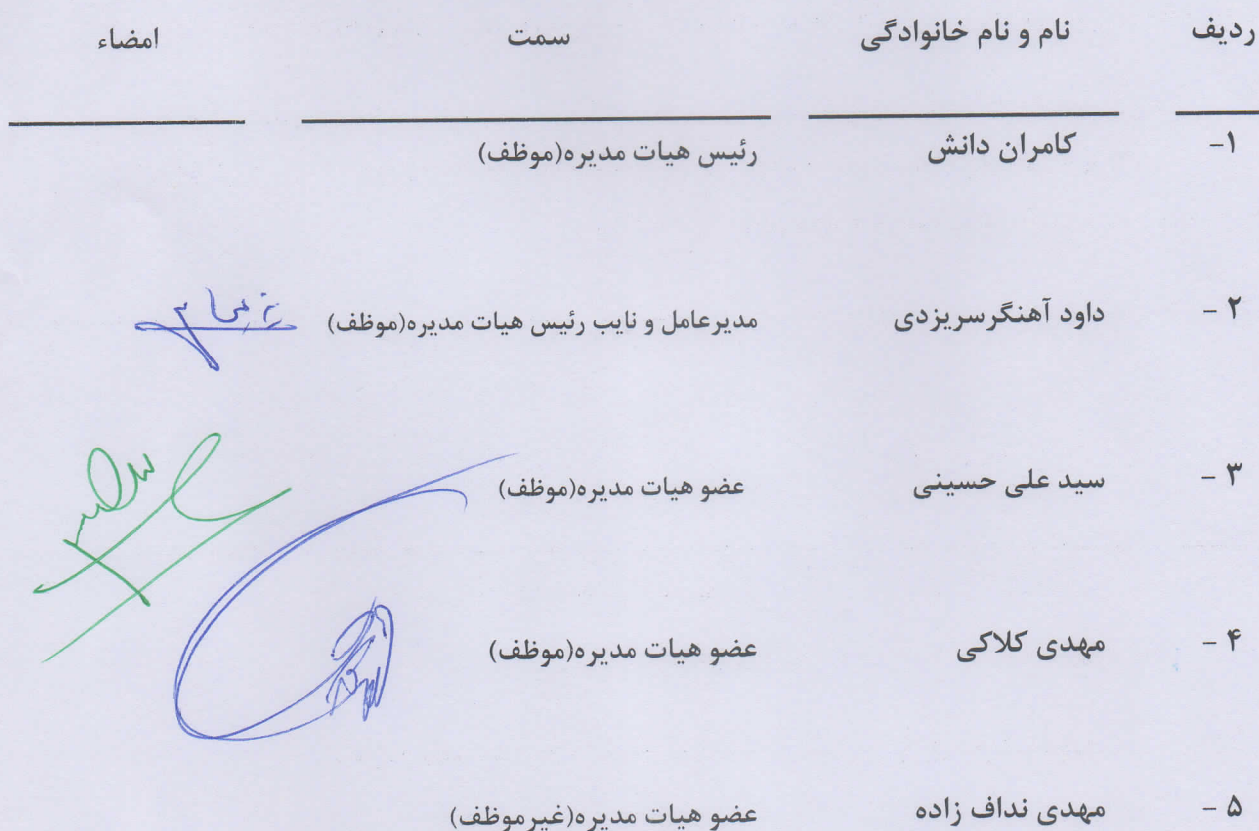 ردیف نام و نام خانوادگی سمت امضاء
۱- کامران دانش رئیس هیات مدیره(موظف)
۲ - داود آهنگرسریزدی مدیرعامل و نایب رئیس هیات مدیره(موظف)
۳ - سید علی حسینی عضو هیات مدیره(موظف)
۴ - مهدی کلاکی عضو هیات مدیره(موظف)
۵ - مهدی نداف زاده عضو هیات مدیره(غیرموظف)